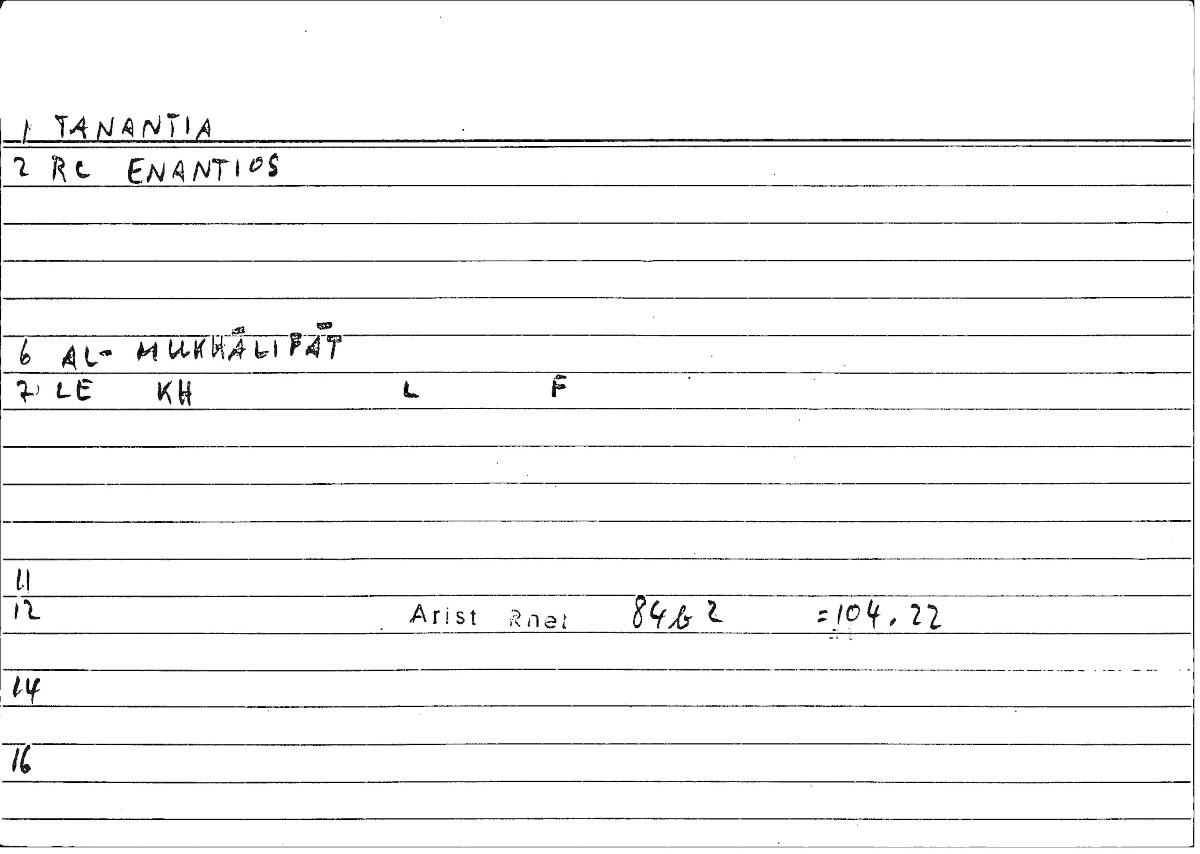 1 TANANTIA
2 RC ENANTIOS
6 AL- MUKHĀLIFĀT
7) LE KH L F
11
12 Arist Rhet 84b2 =104.22
14
16